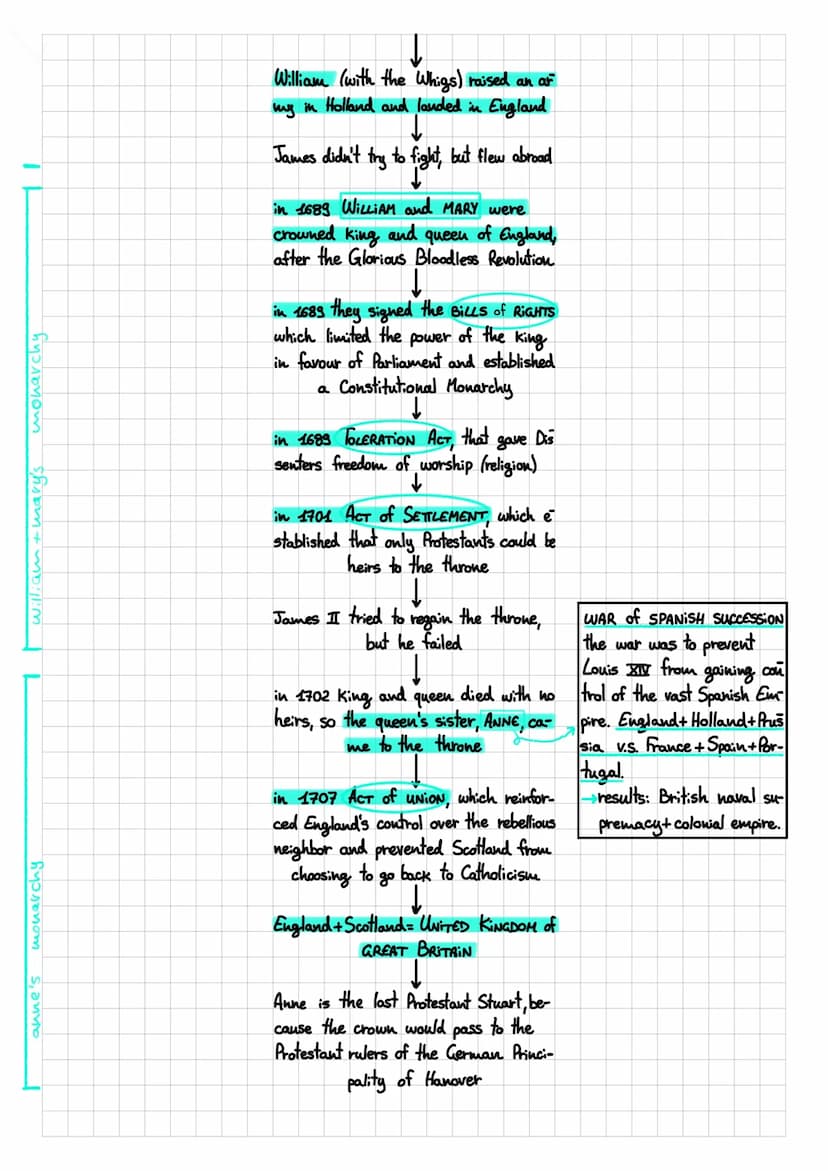 William (with the Whigs) raised an ar-
my in Holland and landed in England
James didn't try to fight, but flew abroad
in 1689 WILLIAM and MARY were
crowned king and queen of England,
after the Glorious Bloodless Revolution
in 1689 they signed the BILLS of RIGHTS
which limited the power of the king
in favour of Parliament and established
a Constitutional Monarchy
in 1689 TOLERATION ACT, that gave Dis-
senters freedom of worship (religion)
in 1701 ACT of SETTLEMENT, which e-
stablished that only Protestants could be
heirs to the throne
James II tried to regain the throne,
but he failed
in 1702 king and queen died with no
heirs, so the queen's sister, ANNE, ca-
me to the throne
in 1707 ACT of UNION, which reinfor-
ced England's control over the rebellious
neighbor and prevented Scotland from
choosing to go back to Catholicism
England+Scotland= UNITED KINGDOM of
GREAT BRITAIN
Anne is the last Protestant Stuart, be-
cause the crown would pass to the
Protestant rulers of the German Princi-
pality of Hanover
WAR of SPANISH SUCCESSION
the war was to prevent
Louis XIV from gaining con-
trol of the vast Spanish Em-
pire. England+Holland+Prus-
sia v.s. France+Spain+Por-
tugal.
→results: British naval su-
premacy+colonial empire.
william+mary's monarchy
anne's monarchy